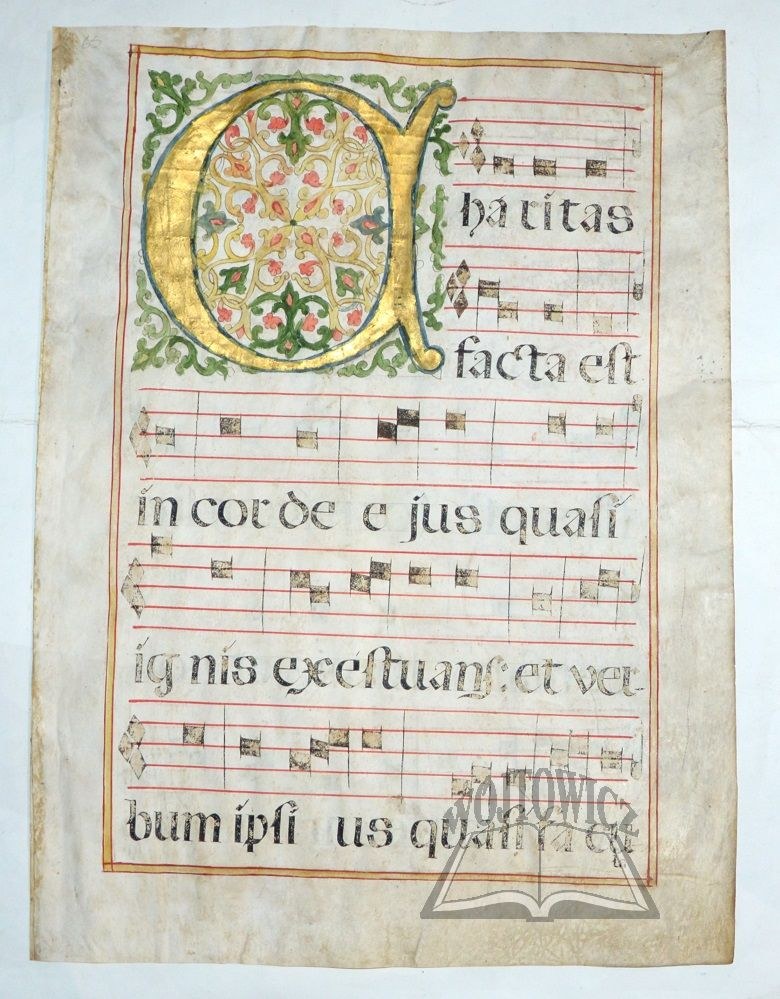 Charitas
facta est
in cor de e jus quasi
ig nis exéstuans: et ver
bum ipsi us quasi fa
WÓJTOWICZ